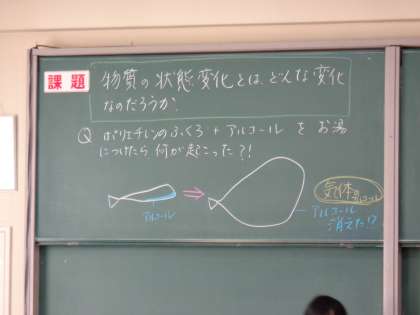 課題
物質の状態変化とは、どんな変化
なのだろうか。
Q ポリエチレンのふくろ + アルコール を お湯
につけたら 何が起こった?!
アルコール
気体のアルコール
アルコール
消えた!?